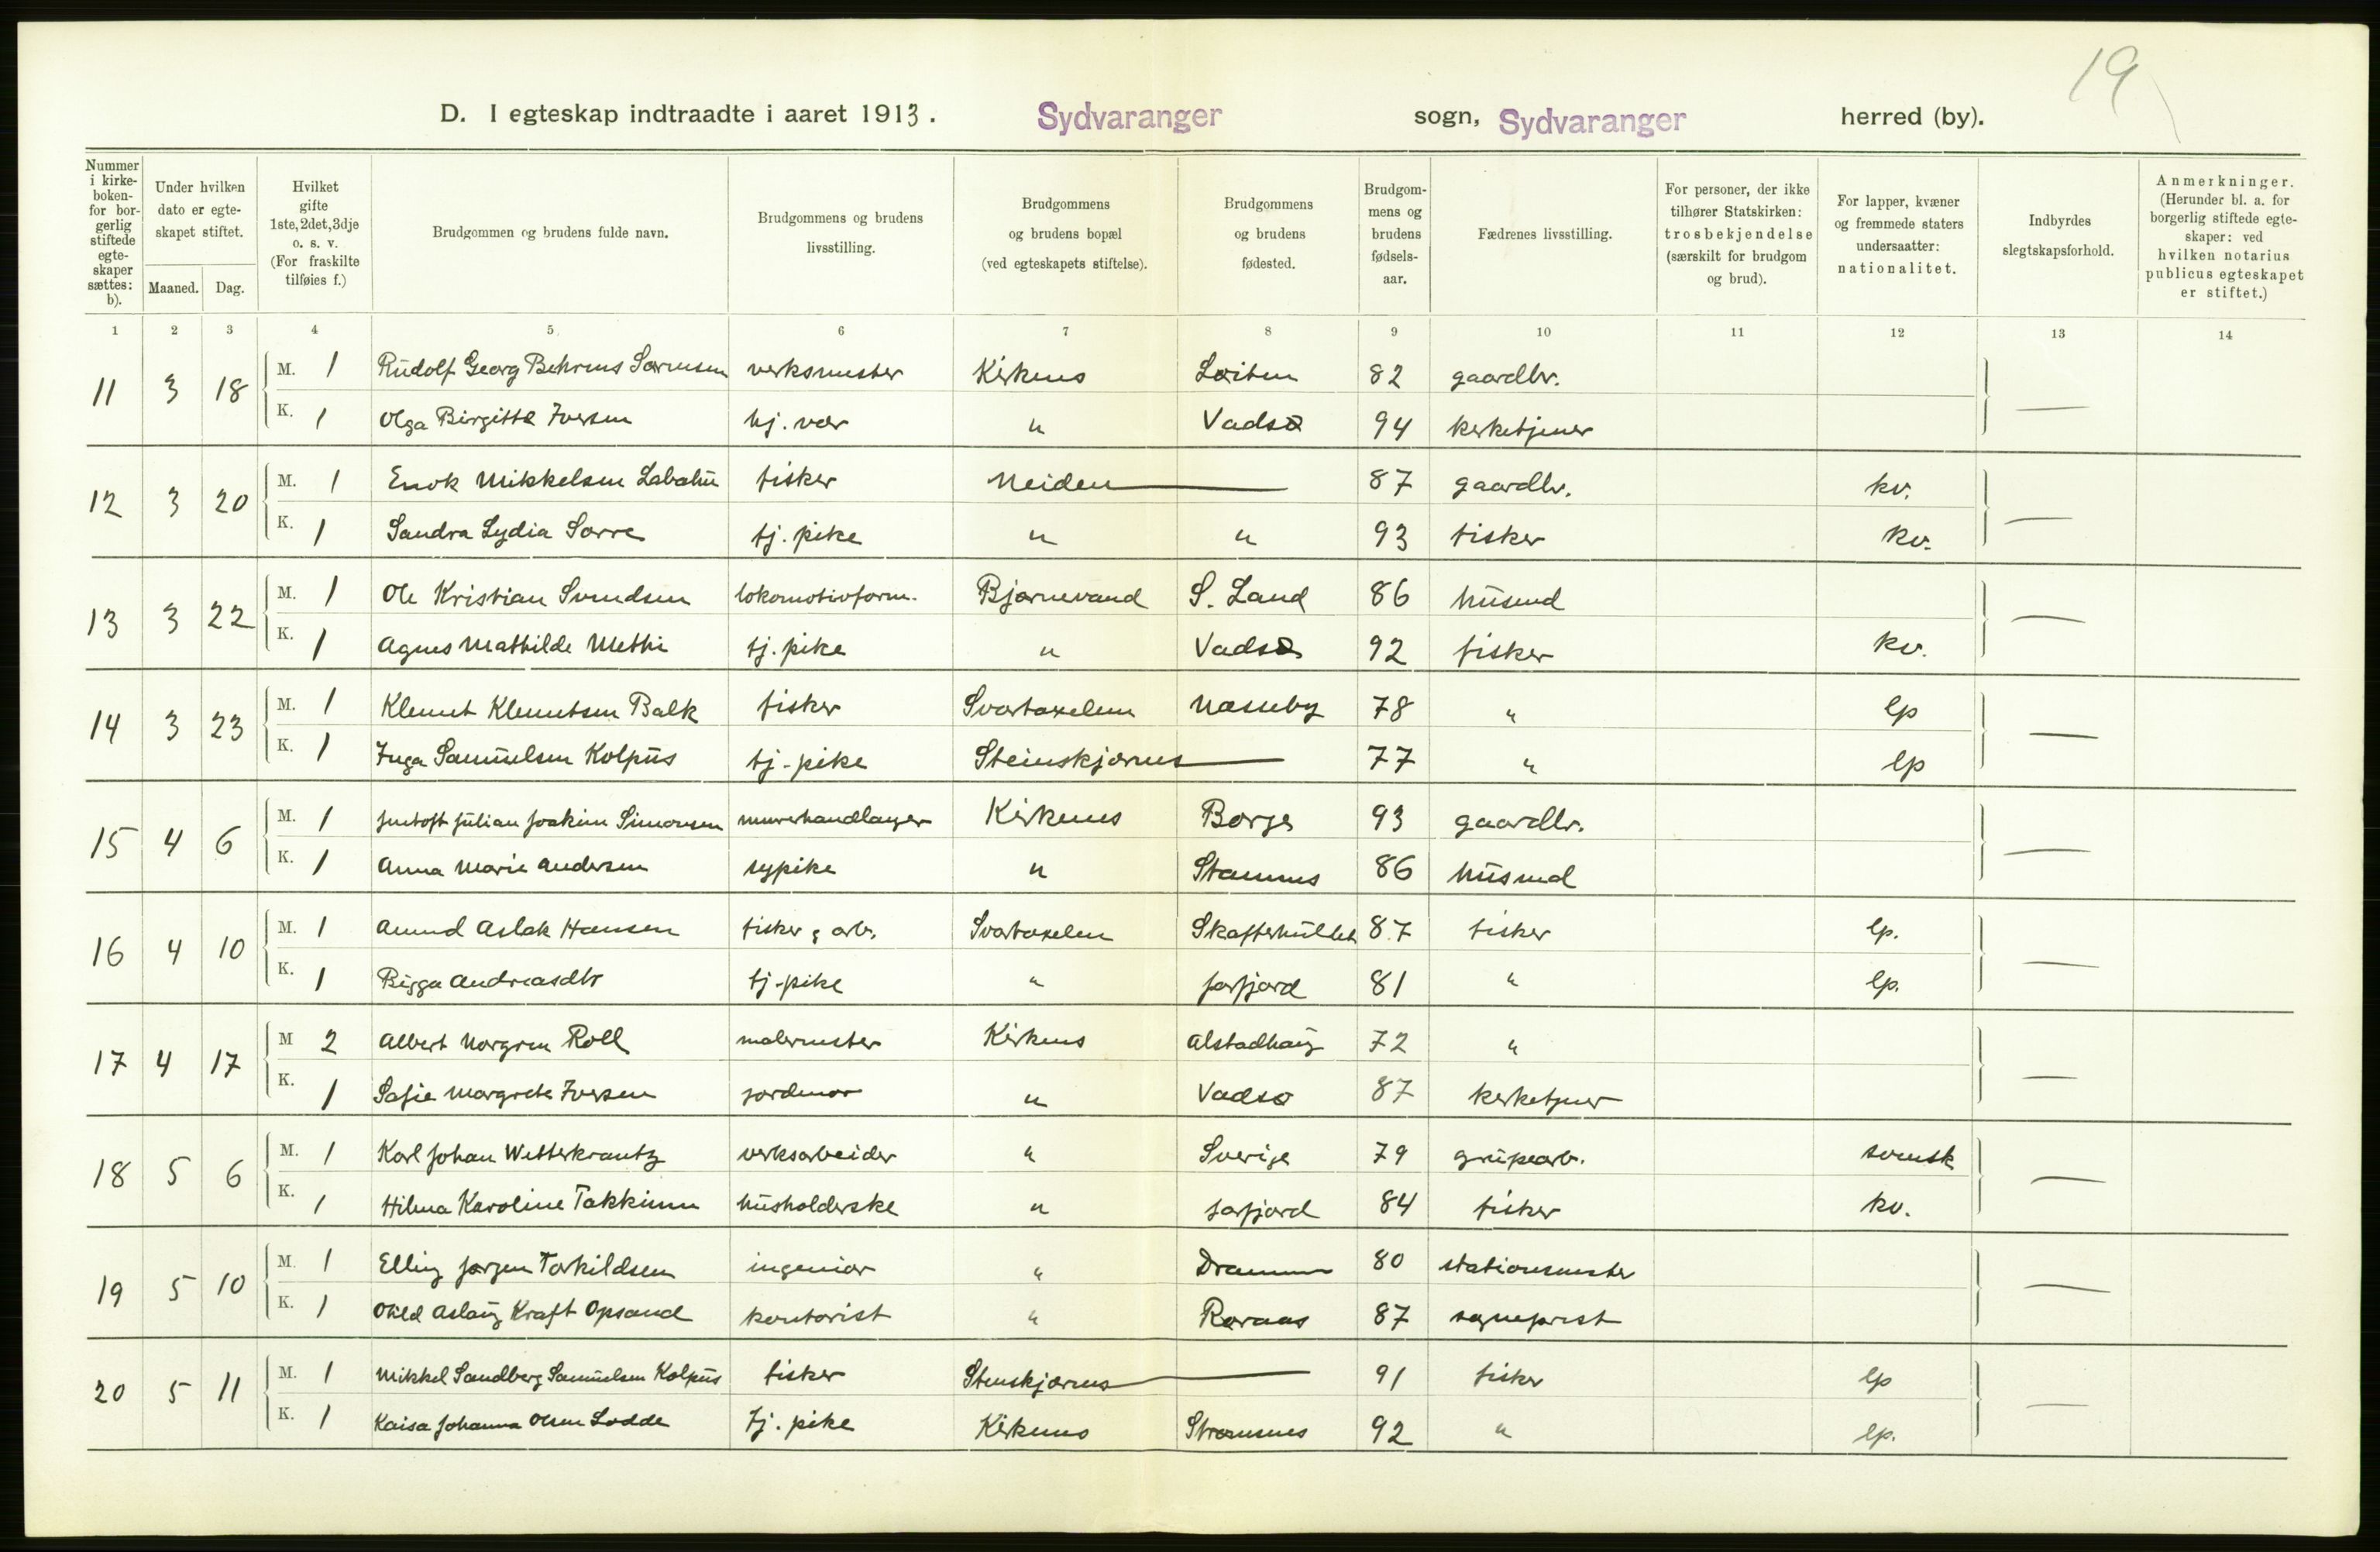 19
D. I egteskap indtraadte i aaret 1913. Sydvaranger sogn, Sydvaranger herred (by).
Nummer i kirkeboken- for borgerlig stiftede egteskaper sættes: b).
Under hvilken dato er egteskapet stiftet.
Maaned. Dag.
Hvilket gifte 1ste, 2det, 3dje o. s. v. (For fraskilte tilføies f.)
Brudgommen og brudens fulde navn.
Brudgommens og brudens livsstilling.
Brudgommens og brudens bopæl (ved egteskapets stiftelse).
Brudgommens og brudens fødested.
Brudgommens og brudens fødselsaar.
Fædrenes livsstilling.
For personer, der ikke tilhører Statskirken: trosbekjendelse (særskilt for brudgom og brud).
For lapper, kvæner og fremmede staters undersaatter: nationalitet.
Indbyrdes slegtskapsforhold.
Anmerkninger. (Herunder bl. a. for borgerlig stiftede egteskaper: ved hvilken notarius publicus egteskapet er stiftet.)
1 2 3 4 5 6 7 8 9 10 11 12 13 14
11 3 18 M. 1 Rudolf Georg Behrens Sørensen verksmester Kirkenes Løiten 82 gaardbr.
K. 1 Olga Birgitte Iversen hj. vær " Vadsø 94 kirketjener —
12 3 20 M. 1 Enok Mikkelsen Labahu fisker Neiden — 87 gaardbr. kv.
K. 1 Sandra Lydia Sarre tj. pike " " 93 fisker kv. —
13 3 22 M. 1 Ole Kristian Svendsen lokomotivform. Bjørnevand S. Land 86 husmd
K. 1 Agnes Mathilde Methi tj. pike " Vadsø 92 fisker kv. —
14 3 23 M. 1 Klemet Klemetsen Balk fisker Svartaxelen Næsseby 78 " lp
K. 1 Inga Samuelsen Kolpus tj. pike Steinskjærnes — 77 " lp —
15 4 6 M. 1 Julian Joakim Simonsen murerhandlanger Kirkenes Borge 93 gaardbr.
K. 1 Anna Marie Andersen sypike " Stamnes 86 husmd —
16 4 10 M. 1 Amund Aslak Hansen fisker & arb. Svartaxelen Skafterhullet 87 fisker lp.
K. 1 Bigga Andreasdtr tj. pike " Jarfjord 81 " lp. —
17 4 17 M 2 Albert Norgren Roll malermester Kirkenes Alstadhaug 72 "
K. 1 Sofie Margrete Iversen jordmor " Vadsø 87 kirketjener —
18 5 6 M. 1 Karl Johan Wetterkrantz verksarbeider " Sverige 79 grubearb. svensk
K. 1 Hilma Karoline Takkinen husholderske " Jarfjord 84 fisker kv. —
19 5 10 M. 1 Elling Jørgen Torkildsen ingeniør " Drammen 80 stationsmester
K. 1 Aslaug Kraft Opsand kontorist " Røraas 87 sogneprest —
20 5 11 M. 1 Mikkel Sandberg Samuelsen Kolpus fisker Stenskjærnes — 91 fisker lp
K. 1 Kaisa Johanna Olsen Lodde tj. pike Kirkenes Strømsnes 92 " lp. —